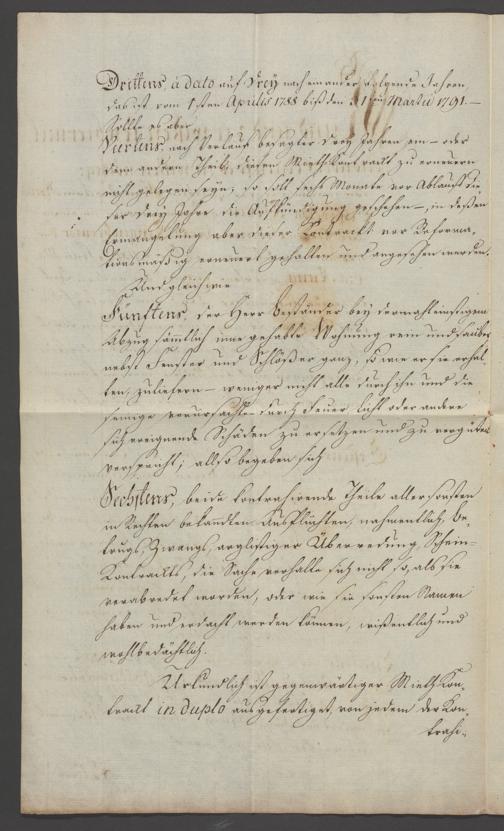 Drittens, à dato auf Drey nach einander folgende Jahre,
das ist vom 1sten Aprilis 1788 biß den 31ten Martii 1791. —
Sollte es aber
Viertens, nach Verlauf besagter Drey Jahren ein – oder
dem andern Theile, diesen Miethkontrackt zu erneuern
nicht gelegen seyn; so soll sechs Monate vor Ablauf die-
ser drey Jahre die Aufkündigung geschehen –, in dessen
Ermangelung aber dieser Kontrackt vor Reforma-
tionsmäßig erneuert gehalten und angesehen werden.
Und gleichwie
Fünftens, der Herr Beständer bey dermahleinstigem
Abzug sämtlich inne gehabte Wohnung rein und sauber
nebst Fenster und Schlößer ganz, so wie er sie erhal-
ten, zuliefern – weniger nicht alle durch ihn und die
seinige verursachte durch Feuer, Licht oder andere
sich ereignende Schäden zu ersetzen und zu vergüten
verspricht; also begeben sich
Sechstens, beide kontrahirende Theile aller sonsten
in Rechten bekandten Ausflüchten, nahmentlich, Be-
trugs, Zwangs, arglistiger Überredung, Schein-
Kontrackts, die Sache verhalte sich nicht so, als sie
verabredet worden, oder wie sie sonsten Namen
haben und erdacht werden können, wißentlich und
wohlbedächtlich.
Urkundlich ist gegenwärtiger Mieth Kon-
trackt in duplo ausgefertiget, von jedem der Kon-
trahi-